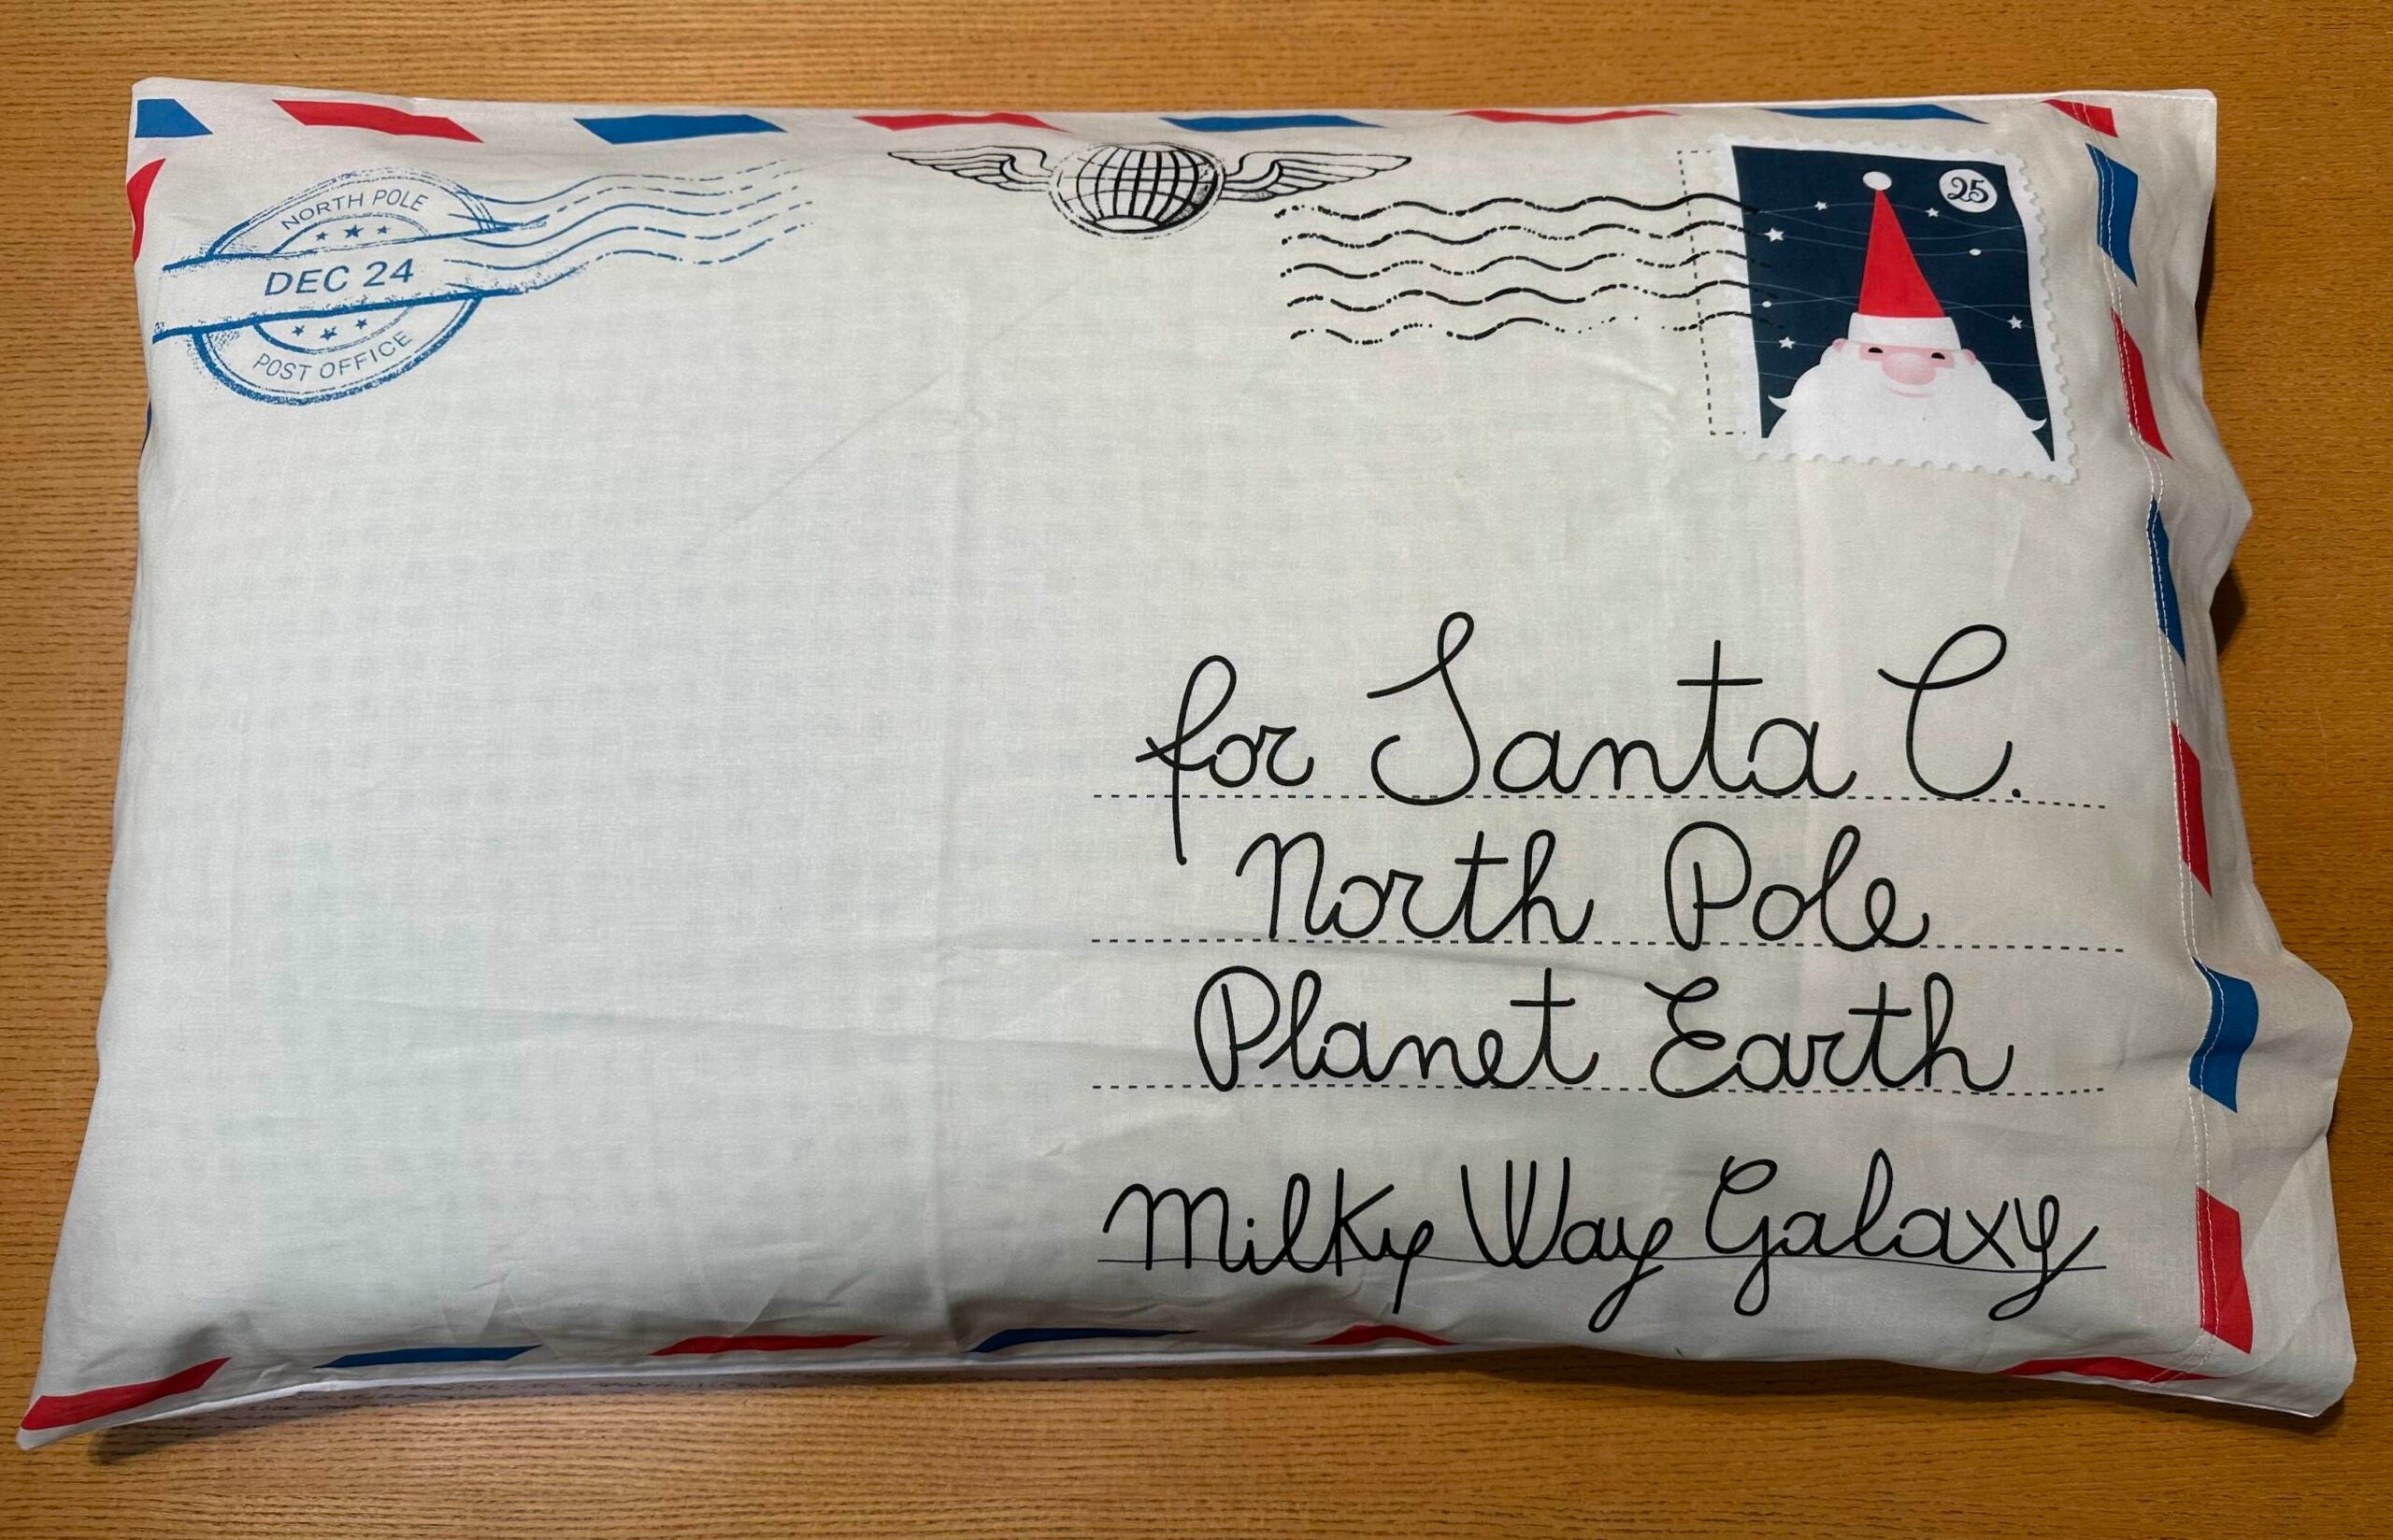 NORTH POLE
DEC 24
POST OFFICE
25
for Santa C.
North Pole
Planet Earth
Milky Way Galaxy